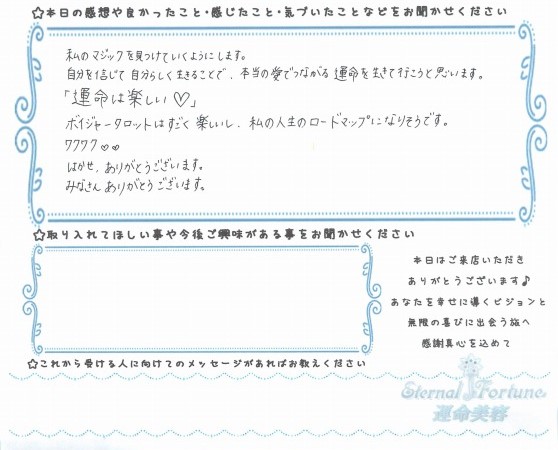 ☆本日の感想や良かったこと・感じたこと・気づいたことなどをお聞かせください
私のマジックを見つけていくようにします。
自分を信じて自分らしく生きることで、本当の愛でつながる運命を生きて行こうと思います。
「運命は楽しい♡」
ボイジャータロットはすごく楽しいし、私の人生のロードマップになりそうです。
ワクワク♡♡
はかせ、ありがとうございます。
みなさんありがとうございます。
☆取り入れてほしい事や今後ご興味がある事をお聞かせください
本日はご来店いただき
ありがとうございます♪
あなたを幸せに導くビジョンと
無限の喜びに出会う旅へ
感謝真心を込めて
☆これから受ける人に向けてのメッセージがあればお教えください
Eternal Fortune
運命美容